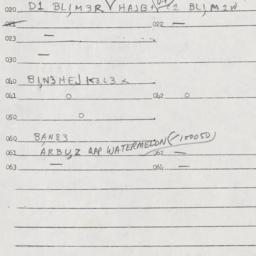 020 D1 BL,M3R V HAJB 2 BL,M2W
021 022 —
023 —
—
040 B,N3HEJ K3L3
041 0 042 0
050 0
060 BAN83
061 ARBUZ APP WATERMELON (-100050) 062 —
063 — 064 —